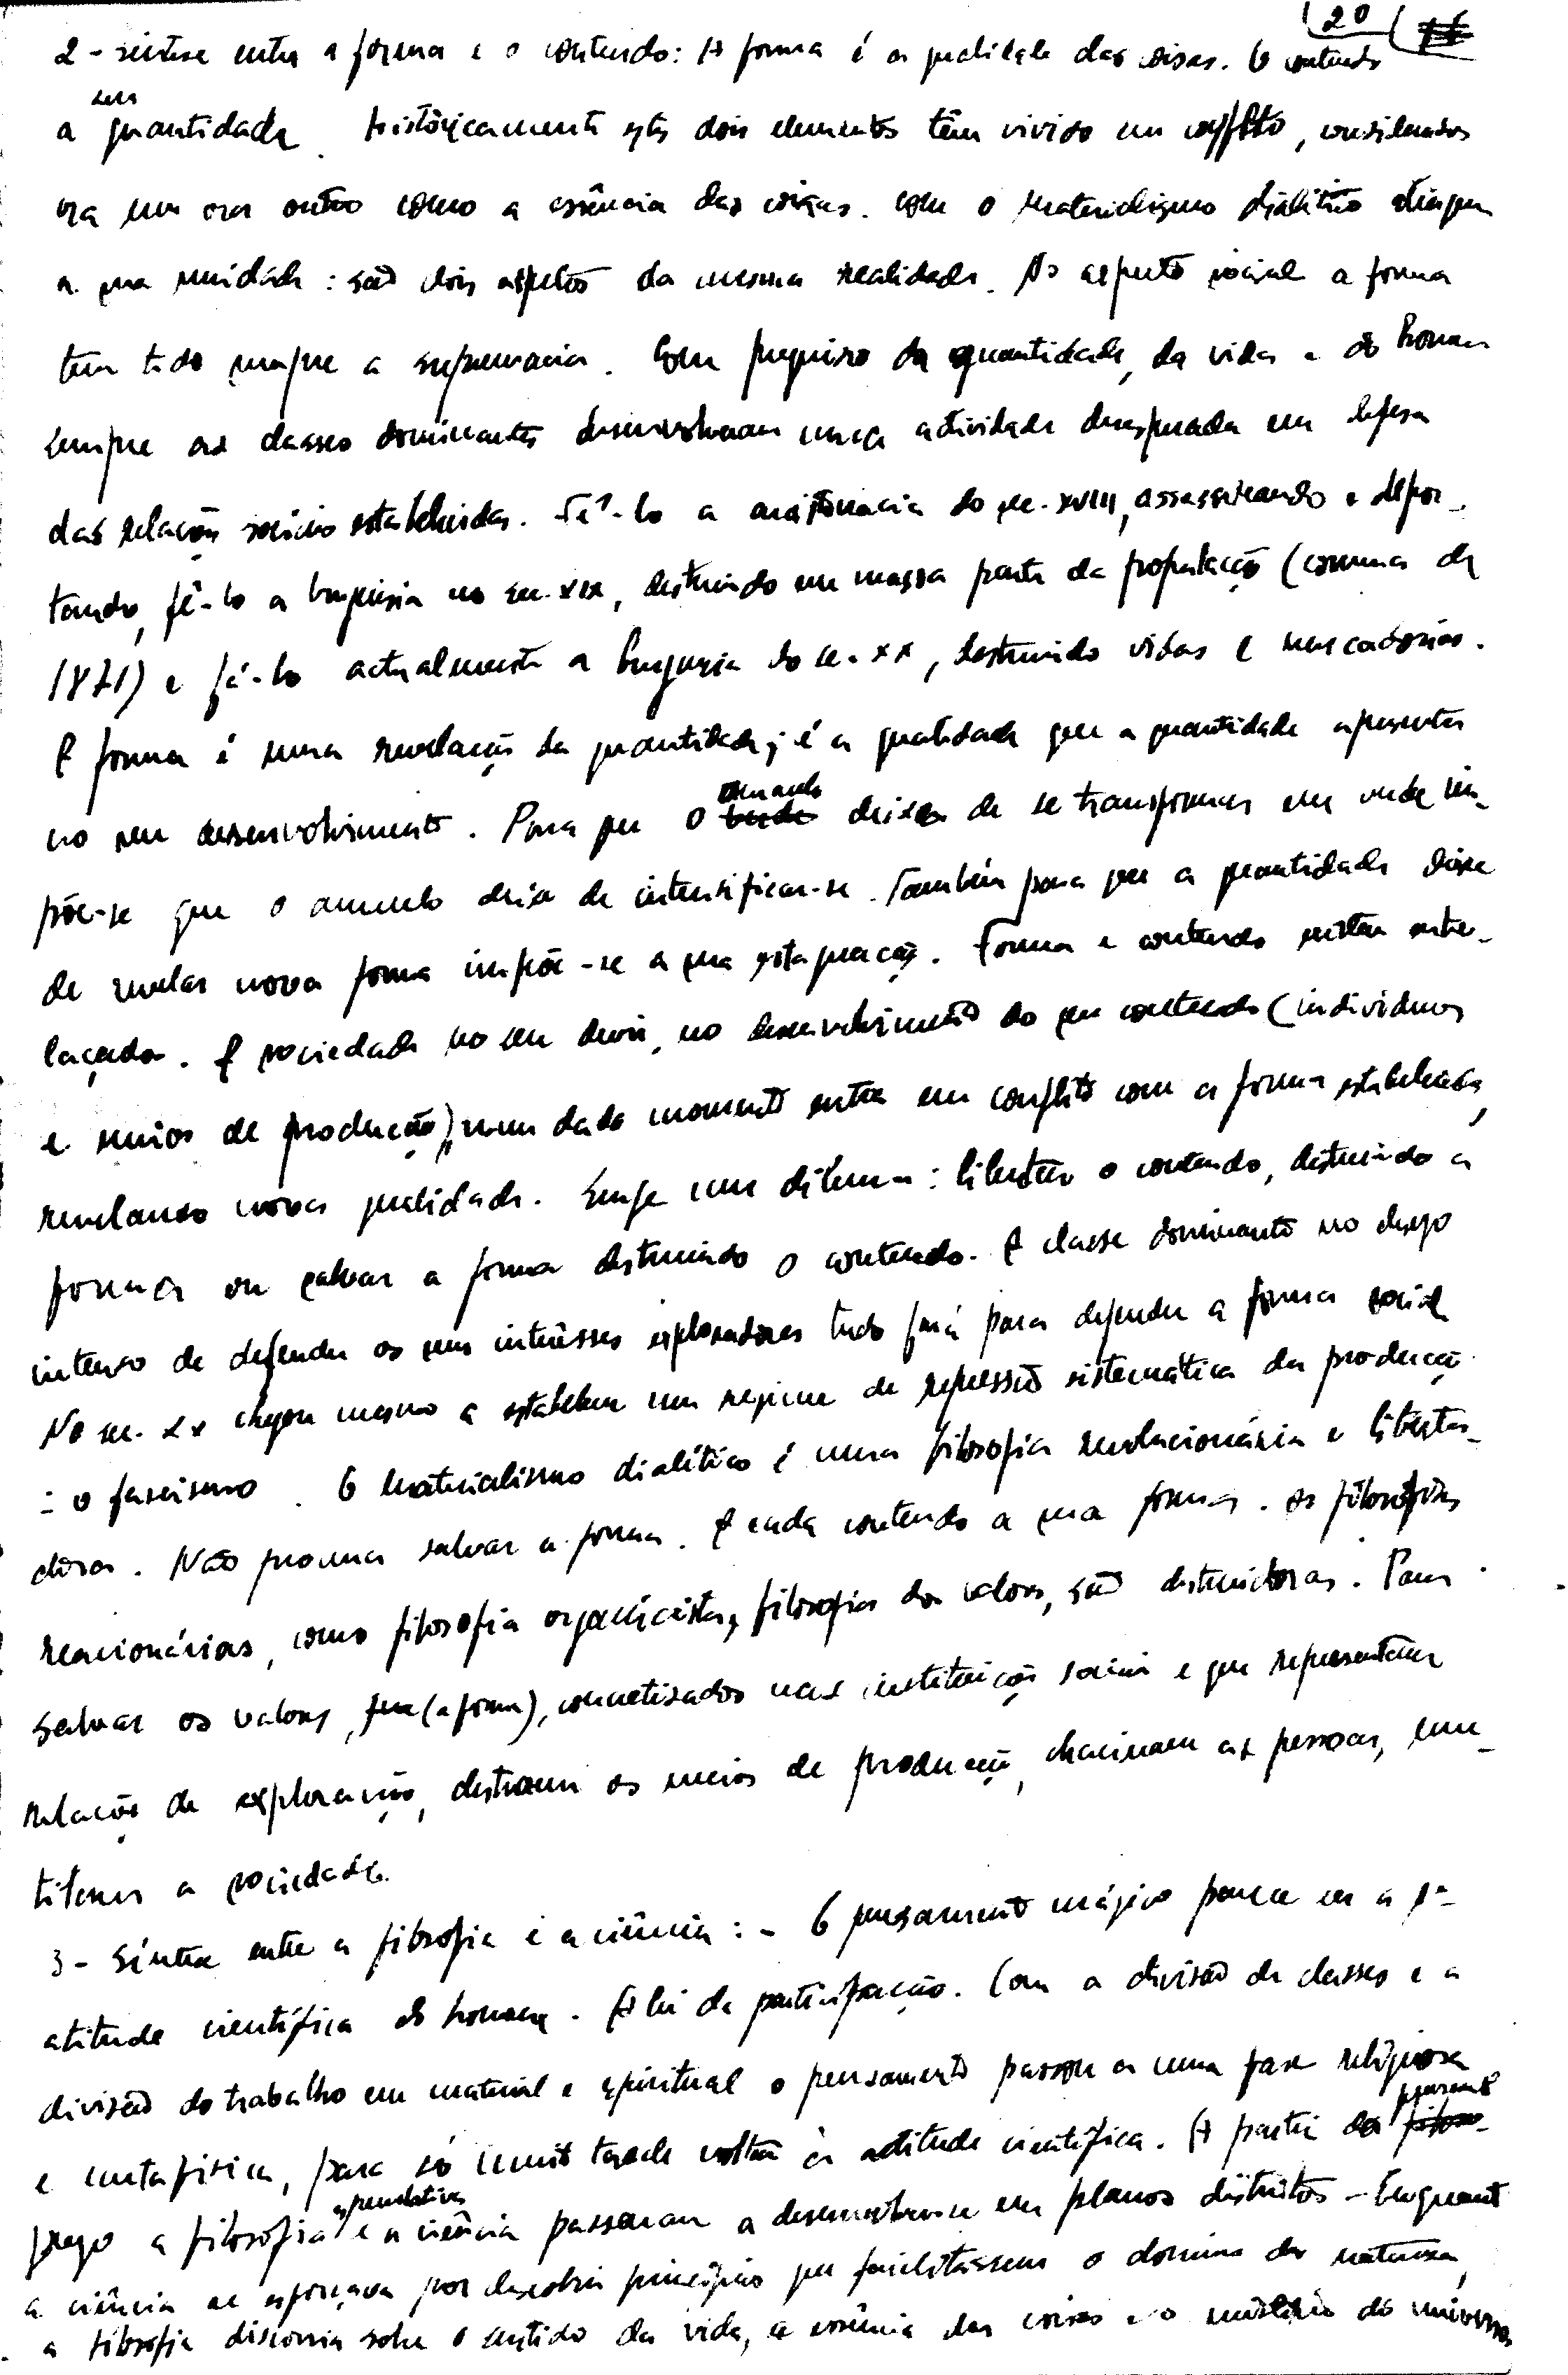 20
2 - síntese entre a forma e o conteúdo: A forma é a qualidade das coisas. O conteúdo
a sua quantidade. Històricamente estes dois elementos têm vivido em conflito, considerados
ora um ora outro como a essência das coisas. Com o materialismo dialético atingem
a sua unidade: são dois aspectos da mesma realidade. No aspecto social a forma
tem tido sempre a supremacia. Com prejuizo da quantidade, da vida e do homem
sempre as classes dominantes desenvolveram uma actividade desesperada em defesa
das relações sociais estabelecidas. Fê-lo a aristocracia do sec. XVIII, assassinando e depor-
tando, fê-lo a burguesia no sec. XIX, destruindo em massa parte da população (comuna de
1871) e fá-lo actualmente a burguesia do sec. XX, destruindo vidas e mercadorias.
A forma é uma revelação da quantidade; é a qualidade que a quantidade apresenta
no seu desenvolvimento. Para que o amarelo deixe de se transformar em verde im-
põe-se que o amarelo deixe de intensificar-se. Também para que a quantidade deixe
de revelar nova forma impõe-se a sua estagnação. Forma e conteúdo existem entre-
laçados. A sociedade no seu devir, no desenvolvimento do seu conteúdo (indivíduos
e meios de produção), num dado momento entra em conflito com a forma estabelecida,
revelando nova qualidade. Surge um dilema: libertar o conteúdo, destruindo a
forma ou salvar a forma destruindo o conteúdo. A classe dominante no desejo
intenso de defender os seus interêsses exploradores tudo fará para defender a forma social.
No sec. XX chegou mesmo a estabelecer um regime de repressão sistemática da produção
: o fascismo. O materialismo dialético é uma filosofia revolucionária e liberta-
dora. Não procura salvar a forma. A cada conteúdo a sua forma. As filosofias
reacionárias, como filosofia organicista, filosofia dos valores, são destruidoras. Para
salvar os valores, (a forma), concretizados nas instituições sociais e que representam
relações de exploração, destroem os meios de produção, chacinam as pessoas, mu-
tilam a sociedade.
3 - Síntese entre a filosofia e a ciência: - O pensamento mágico parece ser a 1ª
atitude científica do homem. A lei da participação. Com a divisão de classes e a
divisão do trabalho em material e espiritual o pensamento passou a uma fase religiosa
e metafísica, para só muito tarde voltar à atitude científica. A partir do pensamento
grego a filosofia especulativa e a ciência passaram a desenvolver-se em planos distintos - Enquanto
a ciência se esforçava por descobrir princípios que facilitassem o domínio da natureza,
a filosofia discorria sobre o sentido da vida, a essência das coisas e o mistério do universo